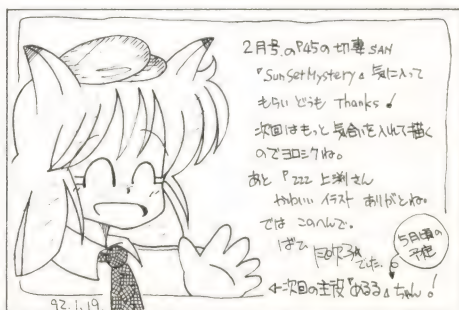 2月号の『45の切妻SAN
『SunSetMystery』気に入って
もらいどうも Thanks!
次回はもっと気合いを入れて描く
のでヨロシクね。
あと『222 上渕さん
かわいいイラストありがとね。
では このへんで。
ばい
でした。
5月頃の
予定
←次回の主役『あるる』ちゃん!
92.1.19.